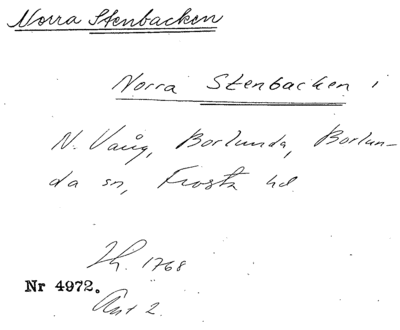 Norra Stenbacken
Norra Stenbacken i
N. Vång, Borlunda, Borlun-
da sn, Frosta hd.
Lh. 1768
Nr 4972.
Akt 2.